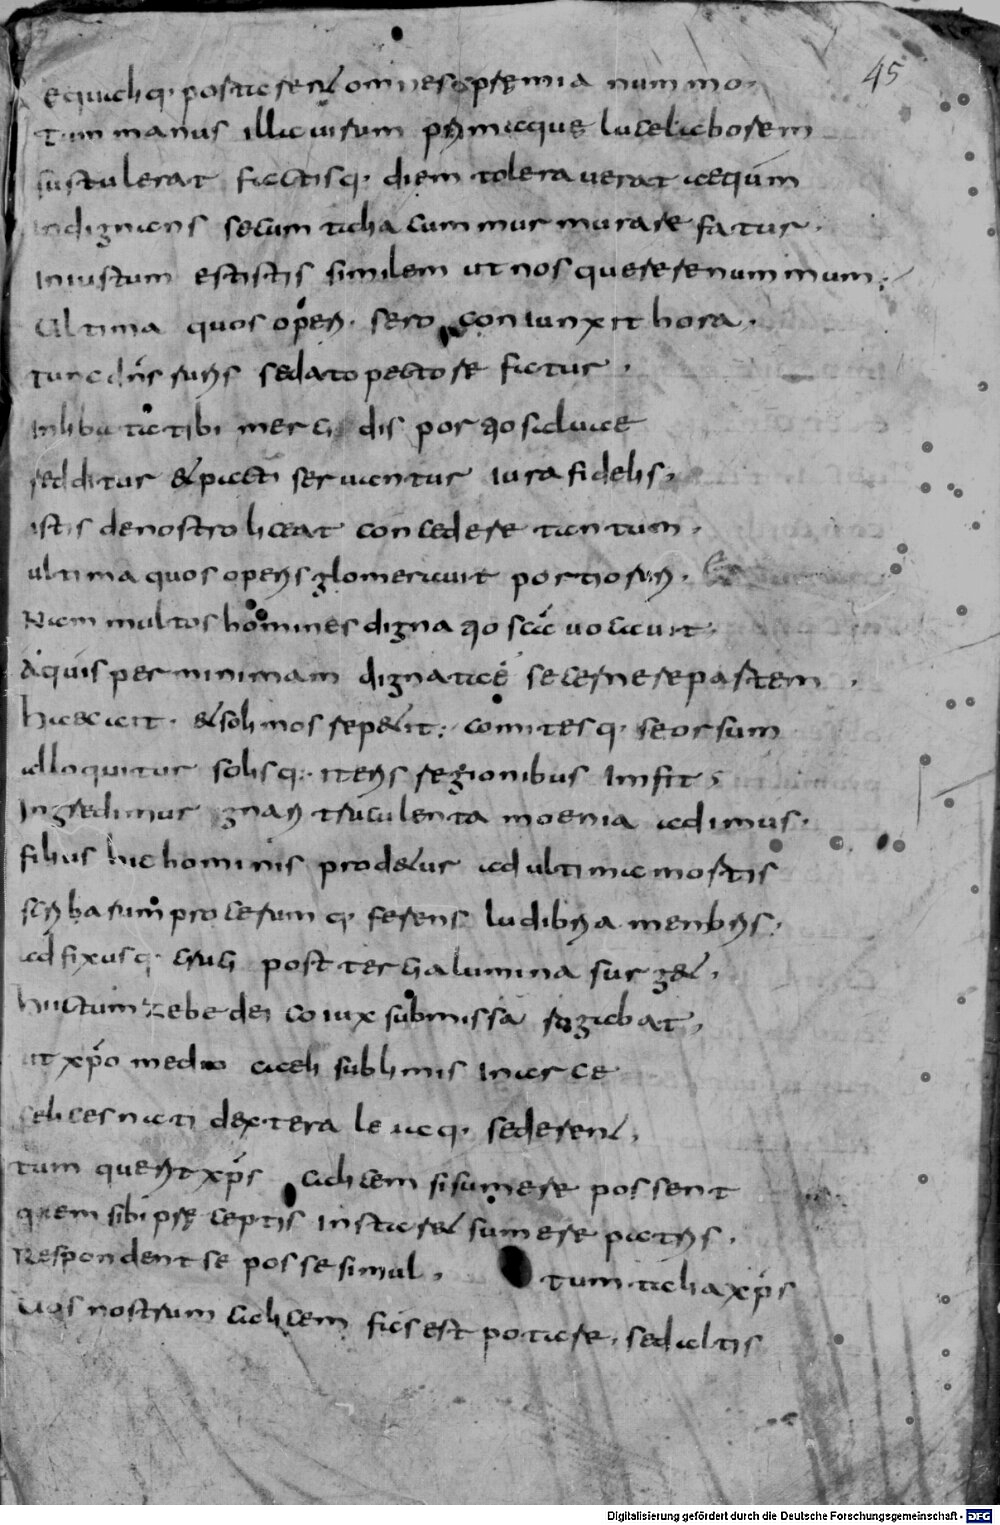 Equaliq· postarent omnes & premia nummo·
Tum manus illa uirum primaque luce laborem
sustulerat factisq· diem toleraverat aequum
Indignans secum talia cum murmurare fatur·
Iniustum est istis similem ut nos querere nummum;
Ultima quos operi· sero coniunxit hora·
tunc dn̄s ruris sedato pectore fatur·
Inlibata tibi mercedis portio salvae
redditur & pacti servantur iura fidelis·
istis de nostro liceat concedere tantum·
ultima quos operis glomeravit portio ruri·
Nam multos homines dignatio scā vocavit·
Aquis per minimam dignatae secernere partem·
haec ait· & solimos repetit; comitesq· seorsum
alloquitur solisq· iteris regionibus infit;
Ingredimur gnari truculenta moenia adimus·
filius hic hominis prodetur ad ultima mortis
scribarum procerumq· ferens ludibria membris·
adfixusq· cruci post tercia lumina surget·
huic tum zebedei coiux submissa rogabat·
ut xp̄o medio caeli sublimis in arce
felices nati dextera leuaq· sederent·
tum querit xp̄s calicem si sumere possent
quem sibi preceptis instaret sumere patris·
Respondent se posse simul· tum talia xp̄s
Uos nostrum calicem fas est potare· sed altis
45
Digitalisierung gefördert durch die Deutsche Forschungsgemeinschaft - DFG